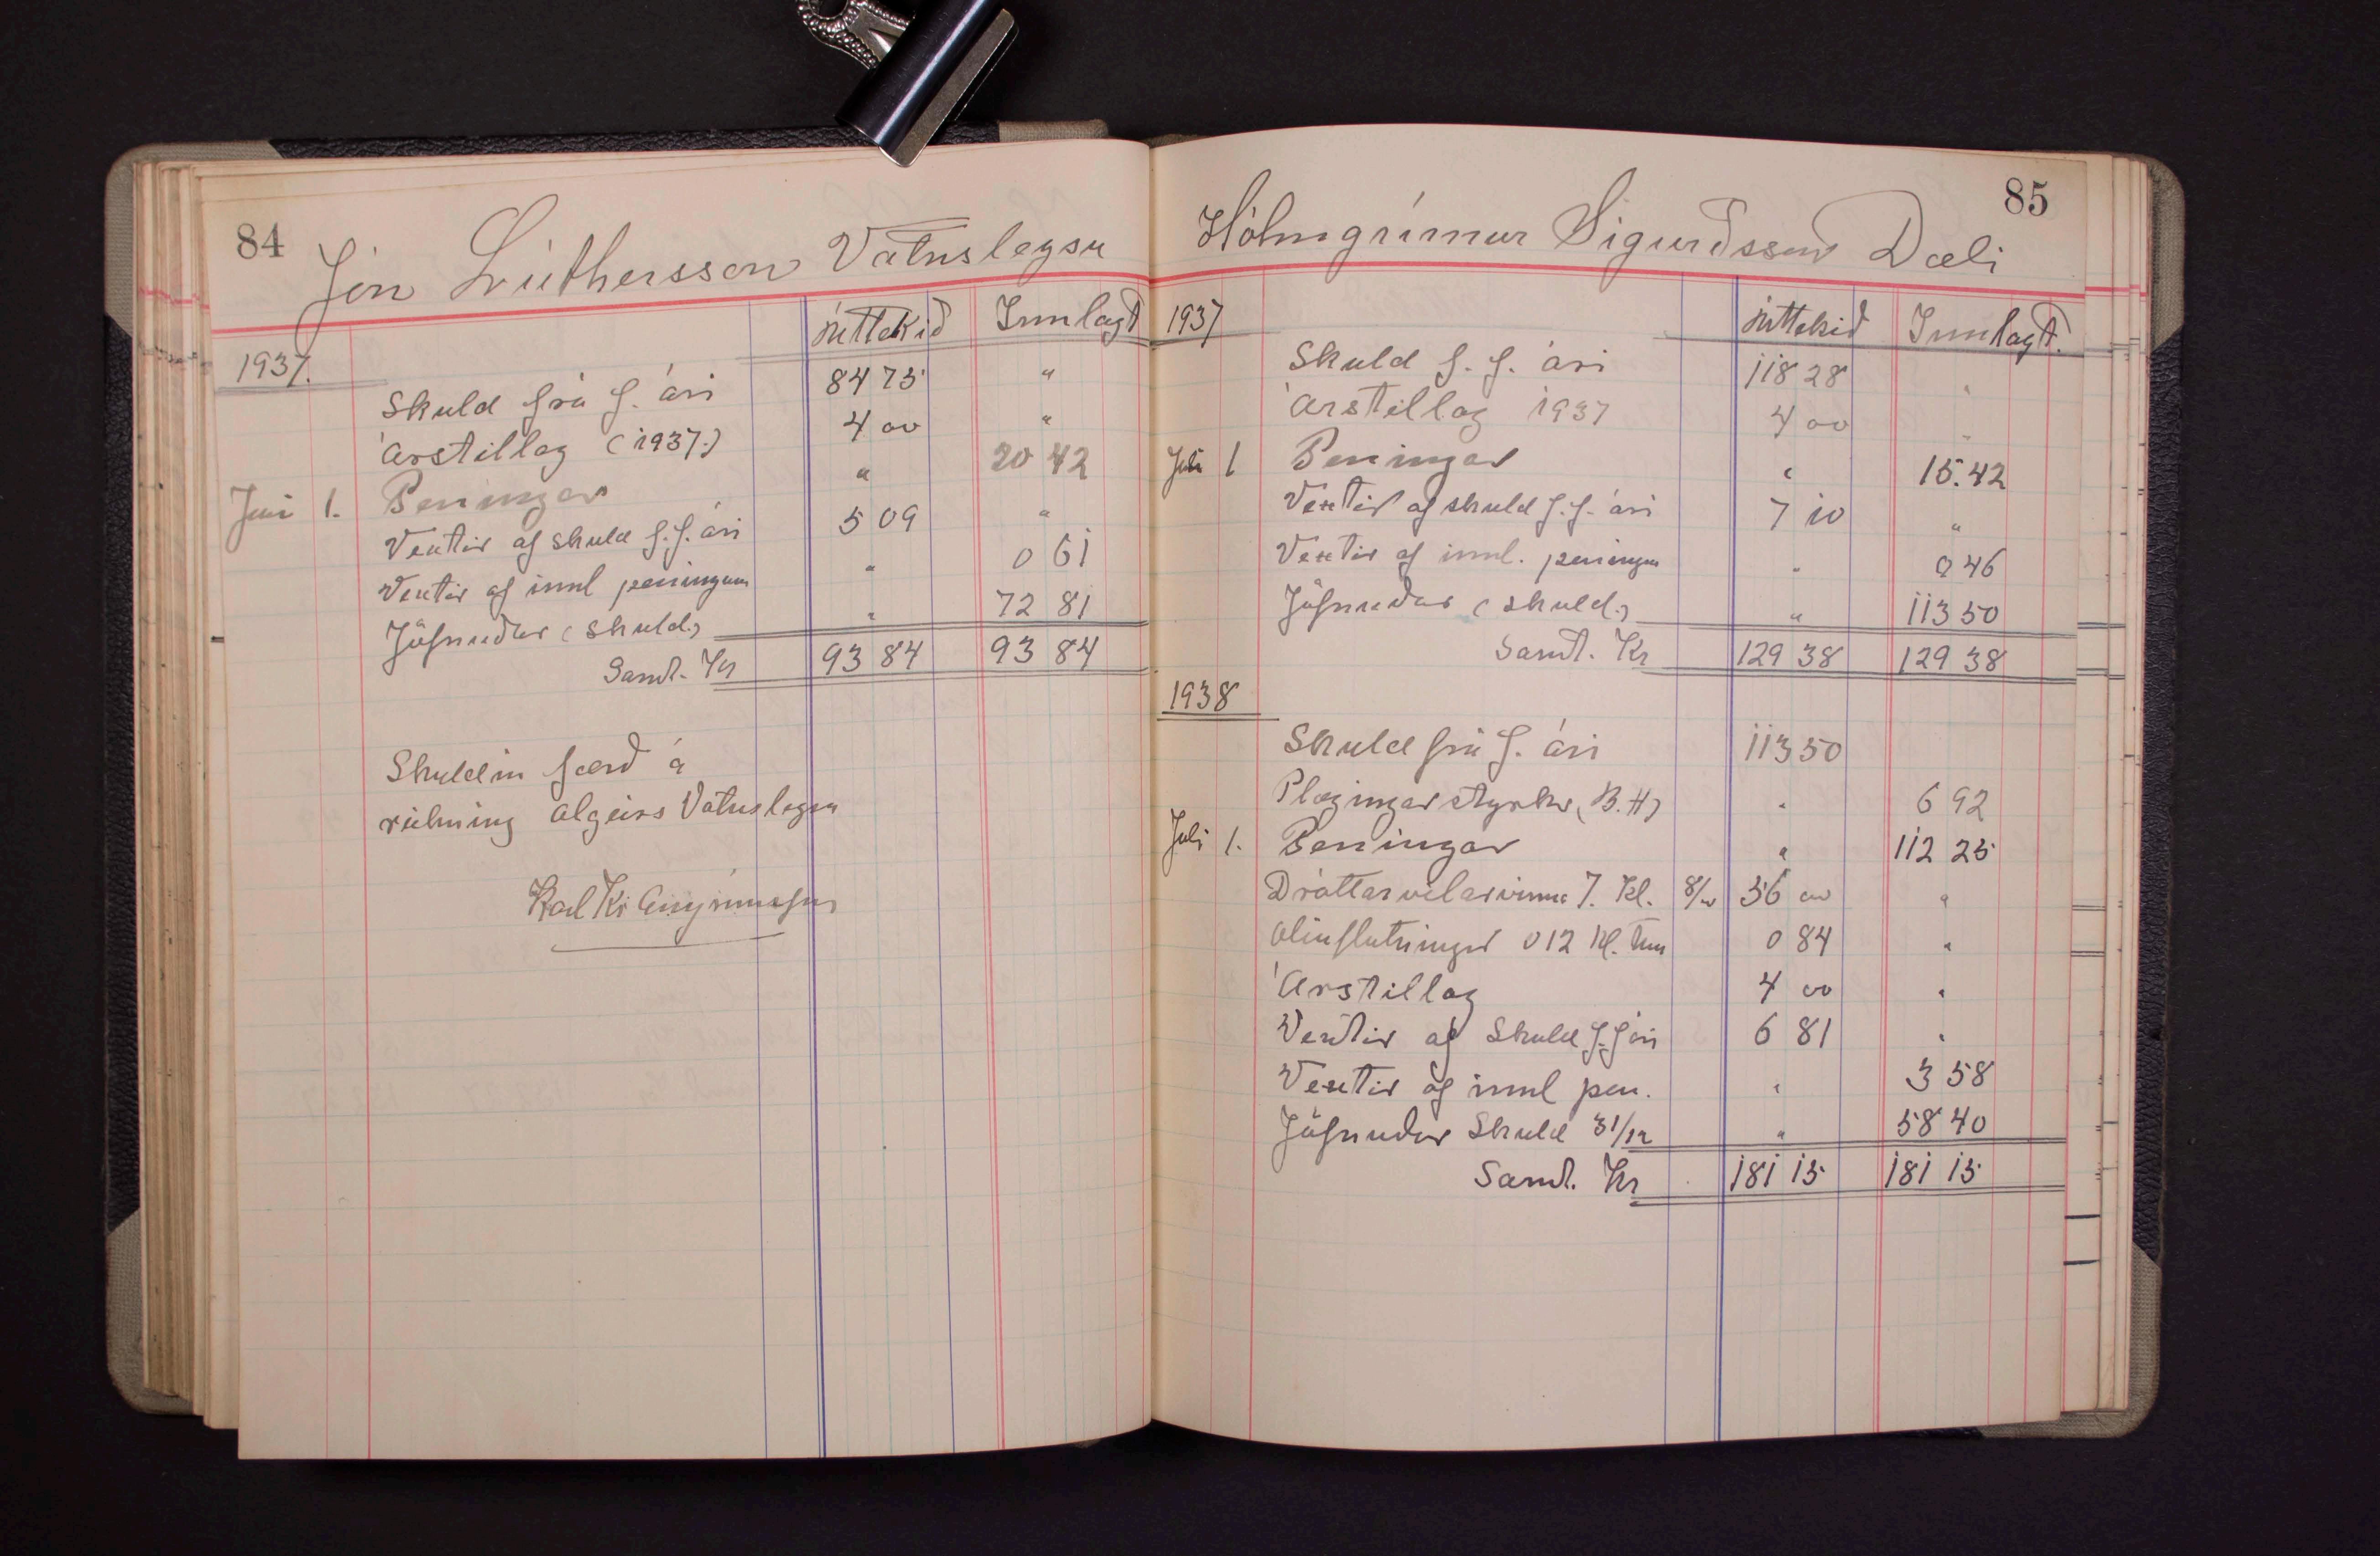 84
Jón Lúthersson Vatnsleysu
úttekið Innlagt
1937.
Skuld frá f. ári 84 75 "
Árstillag (1937.) 4 00 "
Júni 1. Peningar " 20 42
Vextir af skuld f.f. ári 5 09 "
Vextir af innl peningum " 0 61
Jöfnuður (skuld.) " 72 81
Samt. Kr 93 84 93 84
Skuldin færð á
reikning Vatnsleysu
Karl Kr
85
Hólmgrímur Sigurðsson Dæli
1937 úttekið Innlagt.
Skuld f. f. ári 118 28 "
Árstillag 1937 4 00 "
Júli 1 Peningar " 15.42
Vextir af skuld f.f. ári 7 10 "
Vextir af innl. peningum " 0 46
Jöfnuður (skuld.) " 113 50
Samt. Kr 129 38 129 38
1938
Skuld frá f. ári 113 50
Plægingarstyrkur (B.H) " 6 92
Júli 1. Peningar " 112 25
Dráttarvélarvinna 7. kl. 8/00 56 00 "
Olíuflutningur 0 12 kl. tím 0 84 "
Árstillag 4 00 "
Vextir af Skuld f.f ári 6 81 "
Vextir af innl pen. " 3 58
Jöfnuður Skuld 31/12 " 58 40
Samt. Kr 181 15 181 15